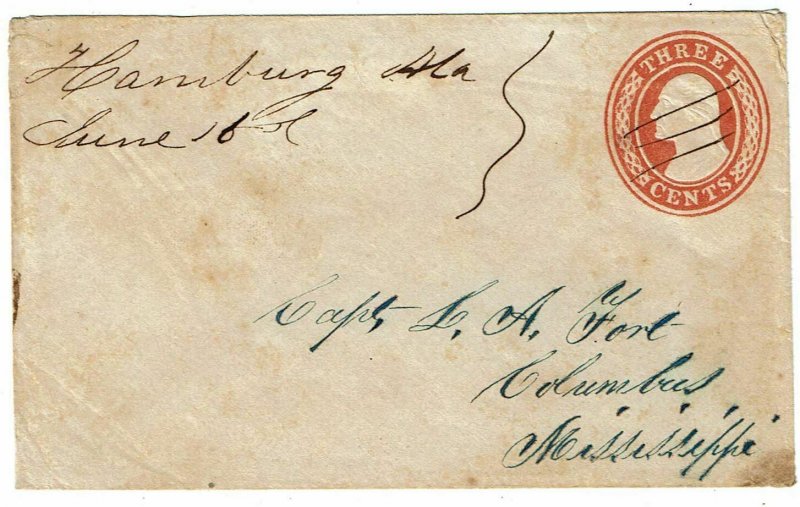 Hamburg Ala
June 16th
THREE
CENTS
Capt, L. A. Fort
Columbus,
Mississippi